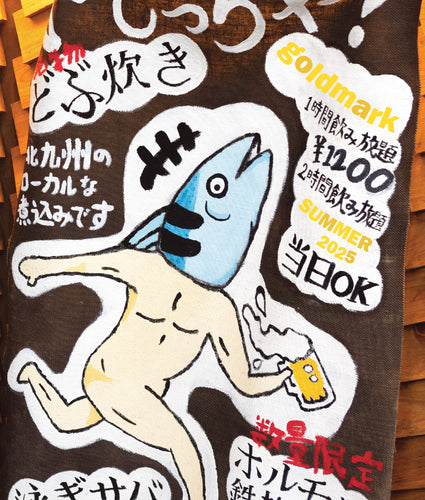 どぶ炊き
北九州の
ローカルな
煮込みです
goldmark
1時間飲み放題
¥1200
2時間飲み放題
SUMMER
2025
当日OK
数量限定
ホルモ
鉄
泳ぎサバ